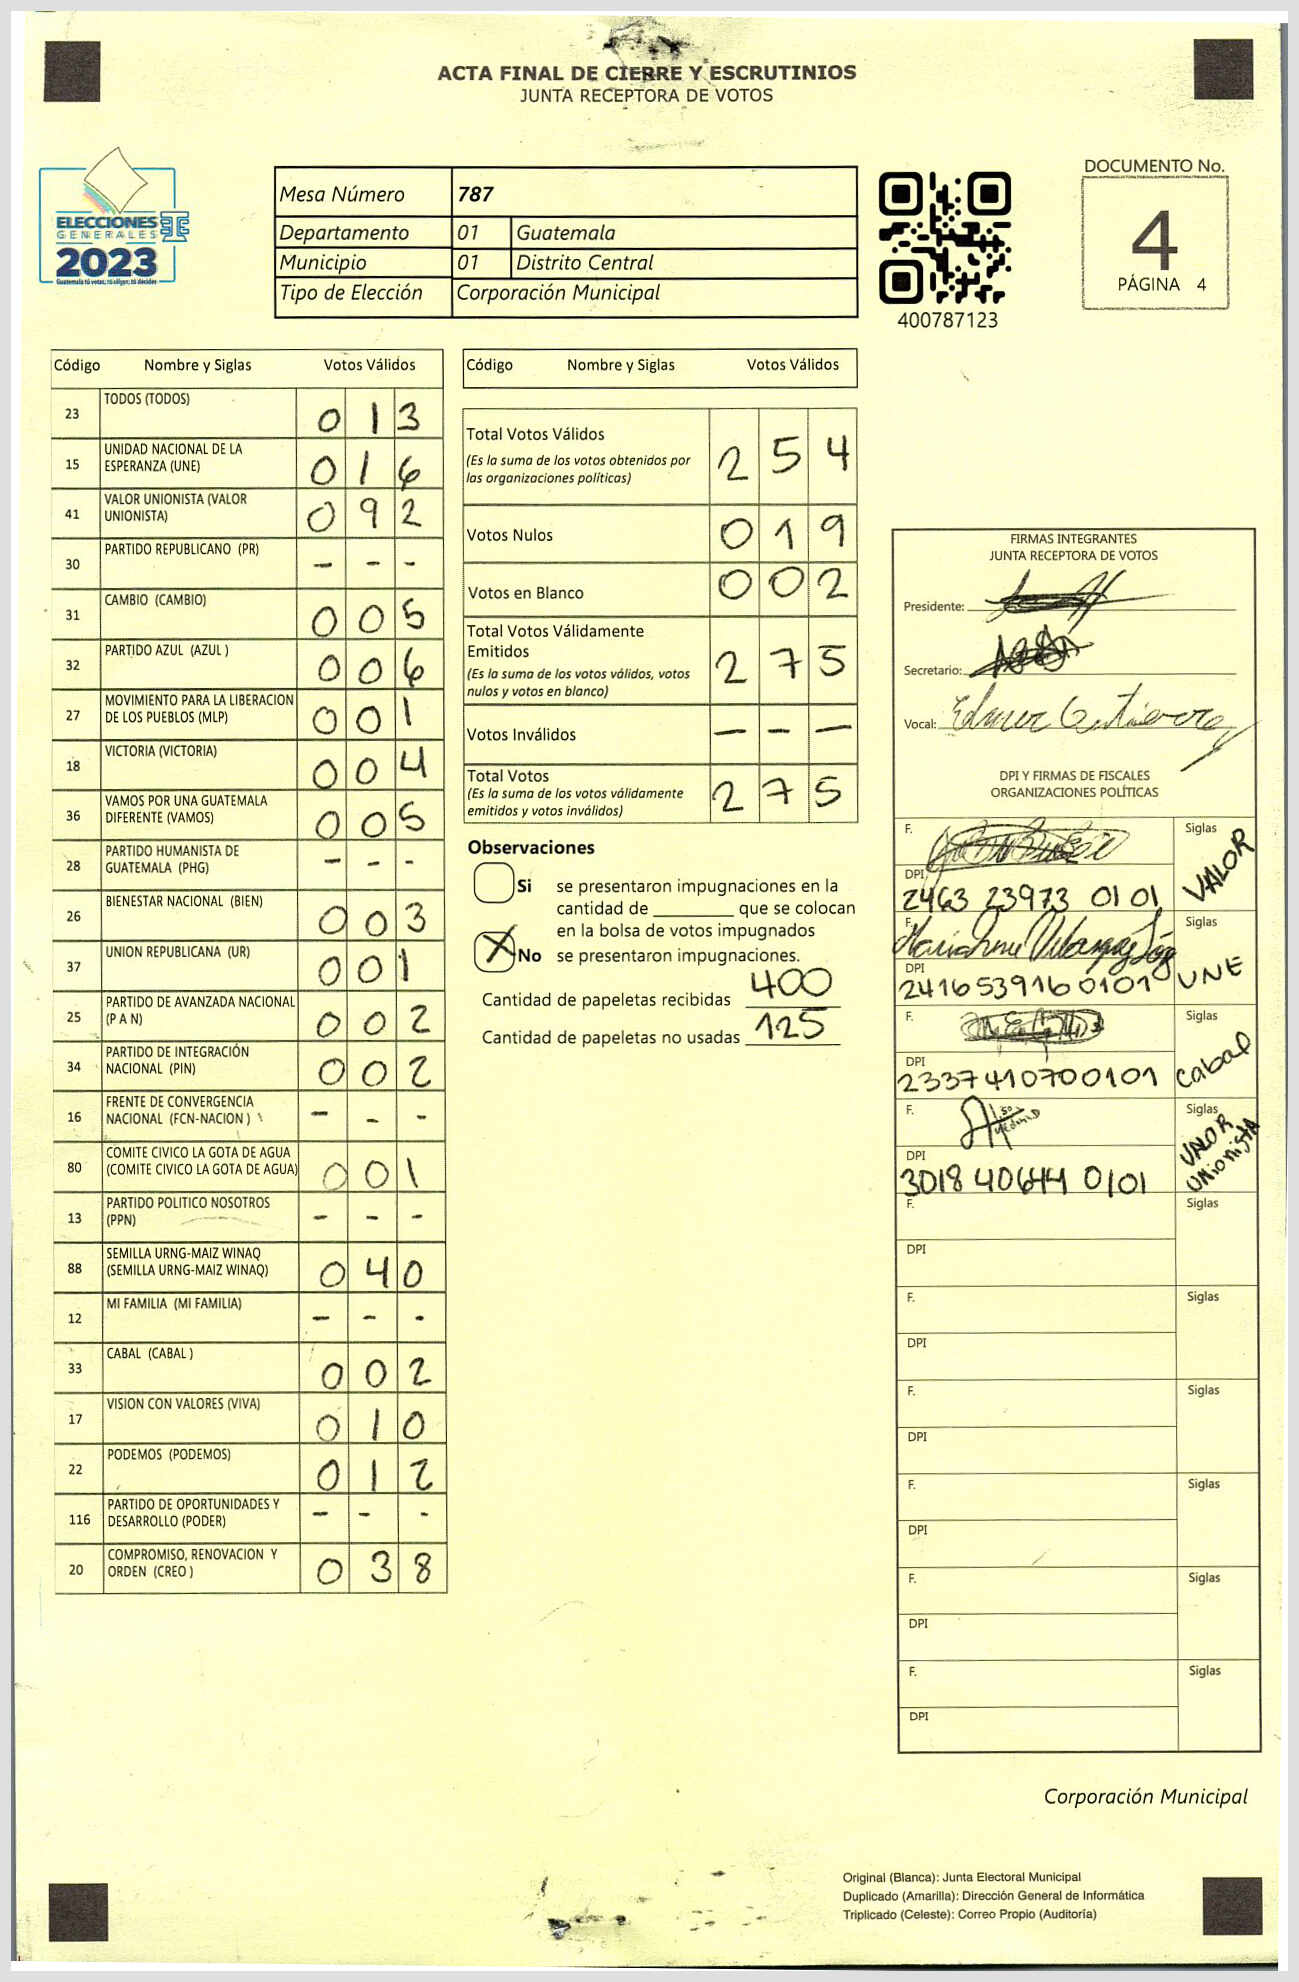 ACTA FINAL DE CIERRE Y ESCRUTINIOS
JUNTA RECEPTORA DE VOTOS
ELECCIONES
GENERALES
2023
Guatemala tú votas, tú eliges, tú decides
Mesa Número 787
Departamento 01 Guatemala
Municipio 01 Distrito Central
Tipo de Elección Corporación Municipal
400787123
DOCUMENTO No.
4
PÁGINA 4
Código Nombre y Siglas Votos Válidos
23 TODOS (TODOS) 0 1 3
15 UNIDAD NACIONAL DE LA
ESPERANZA (UNE) 0 1 6
41 VALOR UNIONISTA (VALOR
UNIONISTA) 0 9 2
30 PARTIDO REPUBLICANO (PR) - - -
31 CAMBIO (CAMBIO) 0 0 5
32 PARTIDO AZUL (AZUL ) 0 0 6
27 MOVIMIENTO PARA LA LIBERACION
DE LOS PUEBLOS (MLP) 0 0 1
18 VICTORIA (VICTORIA) 0 0 4
36 VAMOS POR UNA GUATEMALA
DIFERENTE (VAMOS) 0 0 5
28 PARTIDO HUMANISTA DE
GUATEMALA (PHG) - - -
26 BIENESTAR NACIONAL (BIEN) 0 0 3
37 UNION REPUBLICANA (UR) 0 0 1
25 PARTIDO DE AVANZADA NACIONAL
(P A N) 0 0 2
34 PARTIDO DE INTEGRACIÓN
NACIONAL (PIN) 0 0 2
16 FRENTE DE CONVERGENCIA
NACIONAL (FCN-NACION ) - - -
80 COMITE CIVICO LA GOTA DE AGUA
(COMITE CIVICO LA GOTA DE AGUA) 0 0 1
13 PARTIDO POLITICO NOSOTROS
(PPN) - - -
88 SEMILLA URNG-MAIZ WINAQ
(SEMILLA URNG-MAIZ WINAQ) 0 4 0
12 MI FAMILIA (MI FAMILIA) - - -
33 CABAL (CABAL ) 0 0 2
17 VISION CON VALORES (VIVA) 0 1 0
22 PODEMOS (PODEMOS) 0 1 2
116 PARTIDO DE OPORTUNIDADES Y
DESARROLLO (PODER) - - -
20 COMPROMISO, RENOVACION Y
ORDEN (CREO ) 0 3 8
Código Nombre y Siglas Votos Válidos
Total Votos Válidos 2 5 4
(Es la suma de los votos obtenidos por
las organizaciones políticas)
Votos Nulos 0 1 9
Votos en Blanco 0 0 2
Total Votos Válidamente
Emitidos 2 7 5
(Es la suma de los votos válidos, votos
nulos y votos en blanco)
Votos Inválidos - - -
Total Votos 2 7 5
(Es la suma de los votos válidamente
emitidos y votos inválidos)
Observaciones
Si se presentaron impugnaciones en la
cantidad de ________ que se colocan
en la bolsa de votos impugnados
X No se presentaron impugnaciones.
Cantidad de papeletas recibidas 400
Cantidad de papeletas no usadas 125
FIRMAS INTEGRANTES
JUNTA RECEPTORA DE VOTOS
Presidente:
Secretario:
Vocal:
DPI Y FIRMAS DE FISCALES
ORGANIZACIONES POLÍTICAS
F. Siglas
VALOR
DPI
2463 23973 0101
F. Siglas
UNE
DPI
2416539160101
F. Siglas
Cabal
DPI
2337410700101
F. Siglas
VALOR
UNIONISTA
DPI
3018 40644 0101
F. Siglas
DPI
F. Siglas
DPI
F. Siglas
DPI
F. Siglas
DPI
F. Siglas
DPI
F. Siglas
DPI
Corporación Municipal
Original (Blanca): Junta Electoral Municipal
Duplicado (Amarilla): Dirección General de Informática
Triplicado (Celeste): Correo Propio (Auditoría)